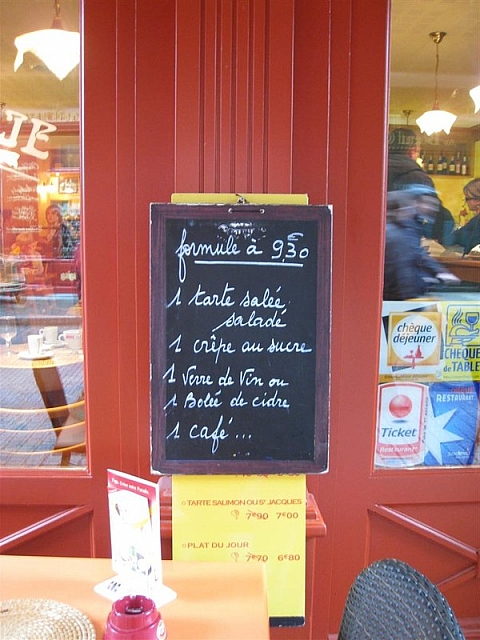 JE
formule à 9,30 €
1 tarte salée
salade
1 crêpe au sucre
1 Verre de Vin ou
1 Bolée de cidre
1 café...
TARTE SAUMON OU ST JACQUES
7€90 7€00
PLAT DU JOUR
7€70 6€80
chèque
déjeuner
CHÈQUE
de TABLE
Ticket
Restaurant
RESTAURANT